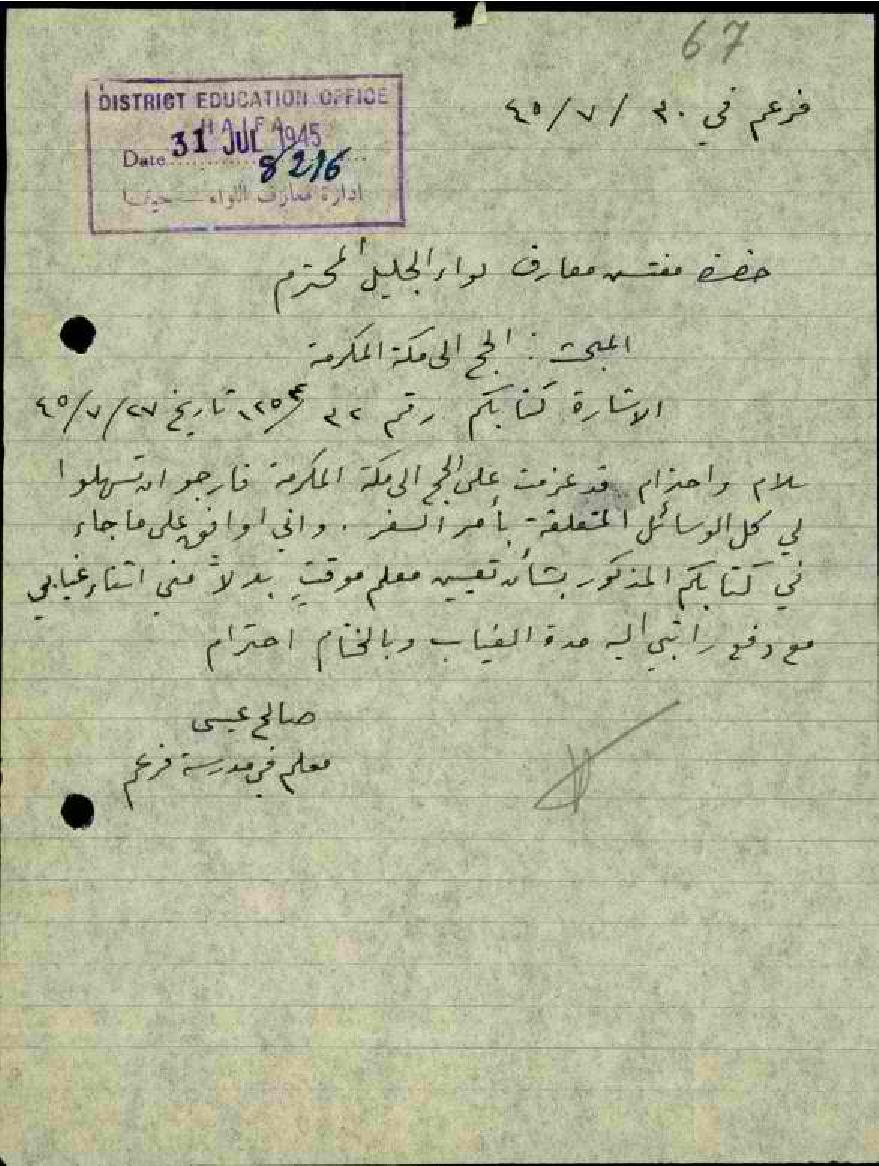 67
فرعم في ٣٠ / ٧ / ٤٥
DISTRICT EDUCATION OFFICE
HAIFA
31 JUL 1945
Date
8216
ادارة معارف اللواء — حيفا
حضرة مفتش معارف لواء الجليل المحترم
المبحث : الحج الى مكة المكرمة
الاشارة كتابكم رقم ٣٢ تاريخ ٢٧/٧/٤٥
سلام واحترام قد عزمت على الحج الى مكة المكرمة فارجو ان تسهلوا
لي كل الوسائل المتعلقة بأمر السفر . واني اوافق على ما جاء
في كتابكم المذكور بشأن تعيين معلم موقت بدلاً مني اثناء غيابي
مع دفع راتبي اليه مدة الغياب وبالختام احترام
صالح عيسى
معلم في مدرسة فرعم